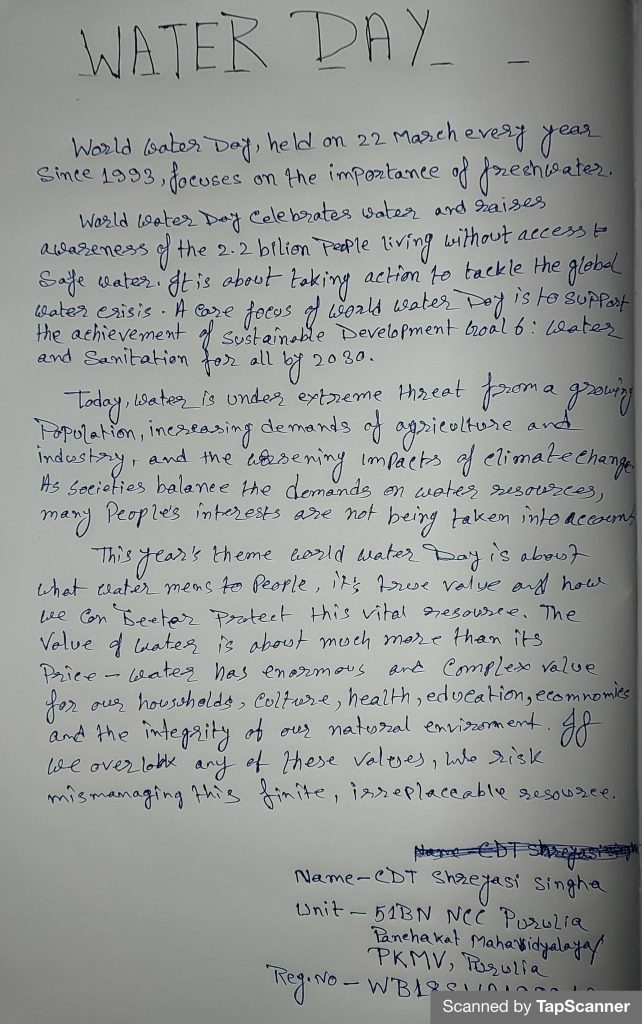 WATER DAY
World water Day, held on 22 March every year
Since 1993, focuses on the importance of freshwater.
World water Day Celebrates water and raises
awareness of the 2.2 bilion People living without access to
Safe water. It is about taking action to tackle the global
water crisis. A Core focus of world water Day is to support
the achievement of Sustainable Development Goal 6: water
and Sanitation for all by 2030.
Today, water is under extreme threat from a growing
Population, increasing demands of agriculture and
industry, and the worsening impacts of climate change
As societies balance the demands on water resources,
many People's interests are not being taken into account
This year's theme world water Day is about
what water mens to People, it's true value and how
we can beetar Protect this vital resource. The
Value of water is about much more than its
Price - water has enormous and Complex value
for our households, Culture, health, education, ecomnomics
and the integrity of our natural enviroment. If
we overlook any of these values, we risk
mismanaging this finite, irreplaceable resource.
Name - CDT Shreyasi singha
Unit - 51BN NCC Purulia
Panchakat Mahavidyalaya/
PKMV, Purulia
Reg. No -
Scanned by TapScanner